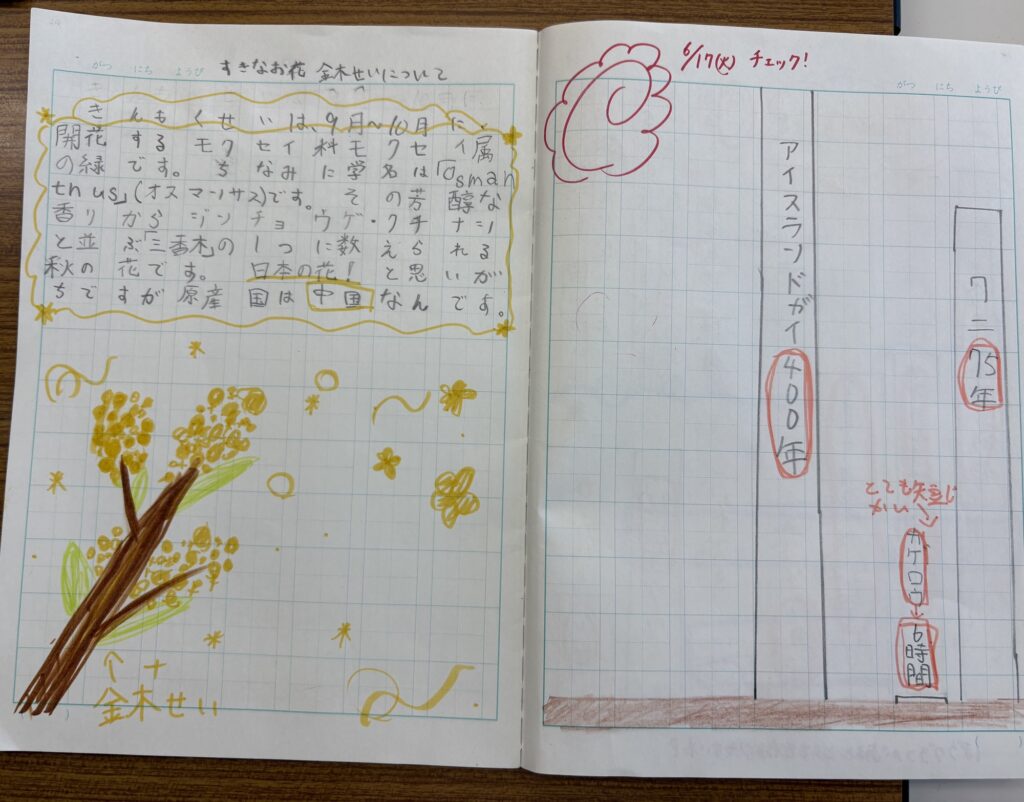 がつ にち ようび
すきなお花 金木せいについて
きんもくせいは、9月～10月に、
開花するモクセイ科モクセイ属
の緑です。ちなみに学名は「Osman
thus」(オスマンサス)です。その芳醇な
香りからジンチョウゲ・クチナシ
と並ぶ「三香木」の1つに数えられる
秋の花です。日本の花！と思いが
ちですが原産国は中国なんです。
↑
金木せい
6/17(火) チェック!
がつ にち ようび
アイスランドガイ400年
ワニ75年
とても短じ
かい
カゲロウ
6時間